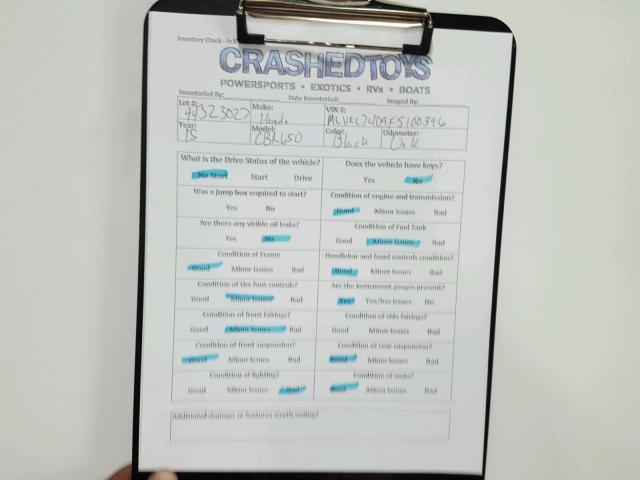 Inventory Check - In
CRASHEDTOYS
POWERSPORTS • EXOTICS • RVs • BOATS
Inventoried By: Date Inventoried: Imaged By:
Lot #: 44323027 Make: Honda VIN #:
Year: 15 Model: CBR650 Color: Black Odometer: Unk
What is the Drive Status of the vehicle? Does the vehicle have keys?
No Start Start Drive Yes No
Was a jump box required to start? Condition of engine and transmission?
Yes No Good Minor Issues Bad
Are there any visible oil leaks? Condition of Fuel Tank
Yes No Good Minor Issues Bad
Condition of Frame Handlebar and hand controls condition?
Good Minor Issues Bad Good Minor Issues Bad
Condition of the foot controls? Are the instrument gauges present?
Good Minor Issues Bad Yes Yes/has issues No
Condition of front fairings? Condition of side fairings?
Good Minor Issues Bad Good Minor Issues Bad
Condition of front suspension? Condition of rear suspension?
Good Minor Issues Bad Good Minor Issues Bad
Condition of lighting? Condition of seats?
Good Minor Issues Bad Good Minor Issues Bad
Additional damage or features worth noting?